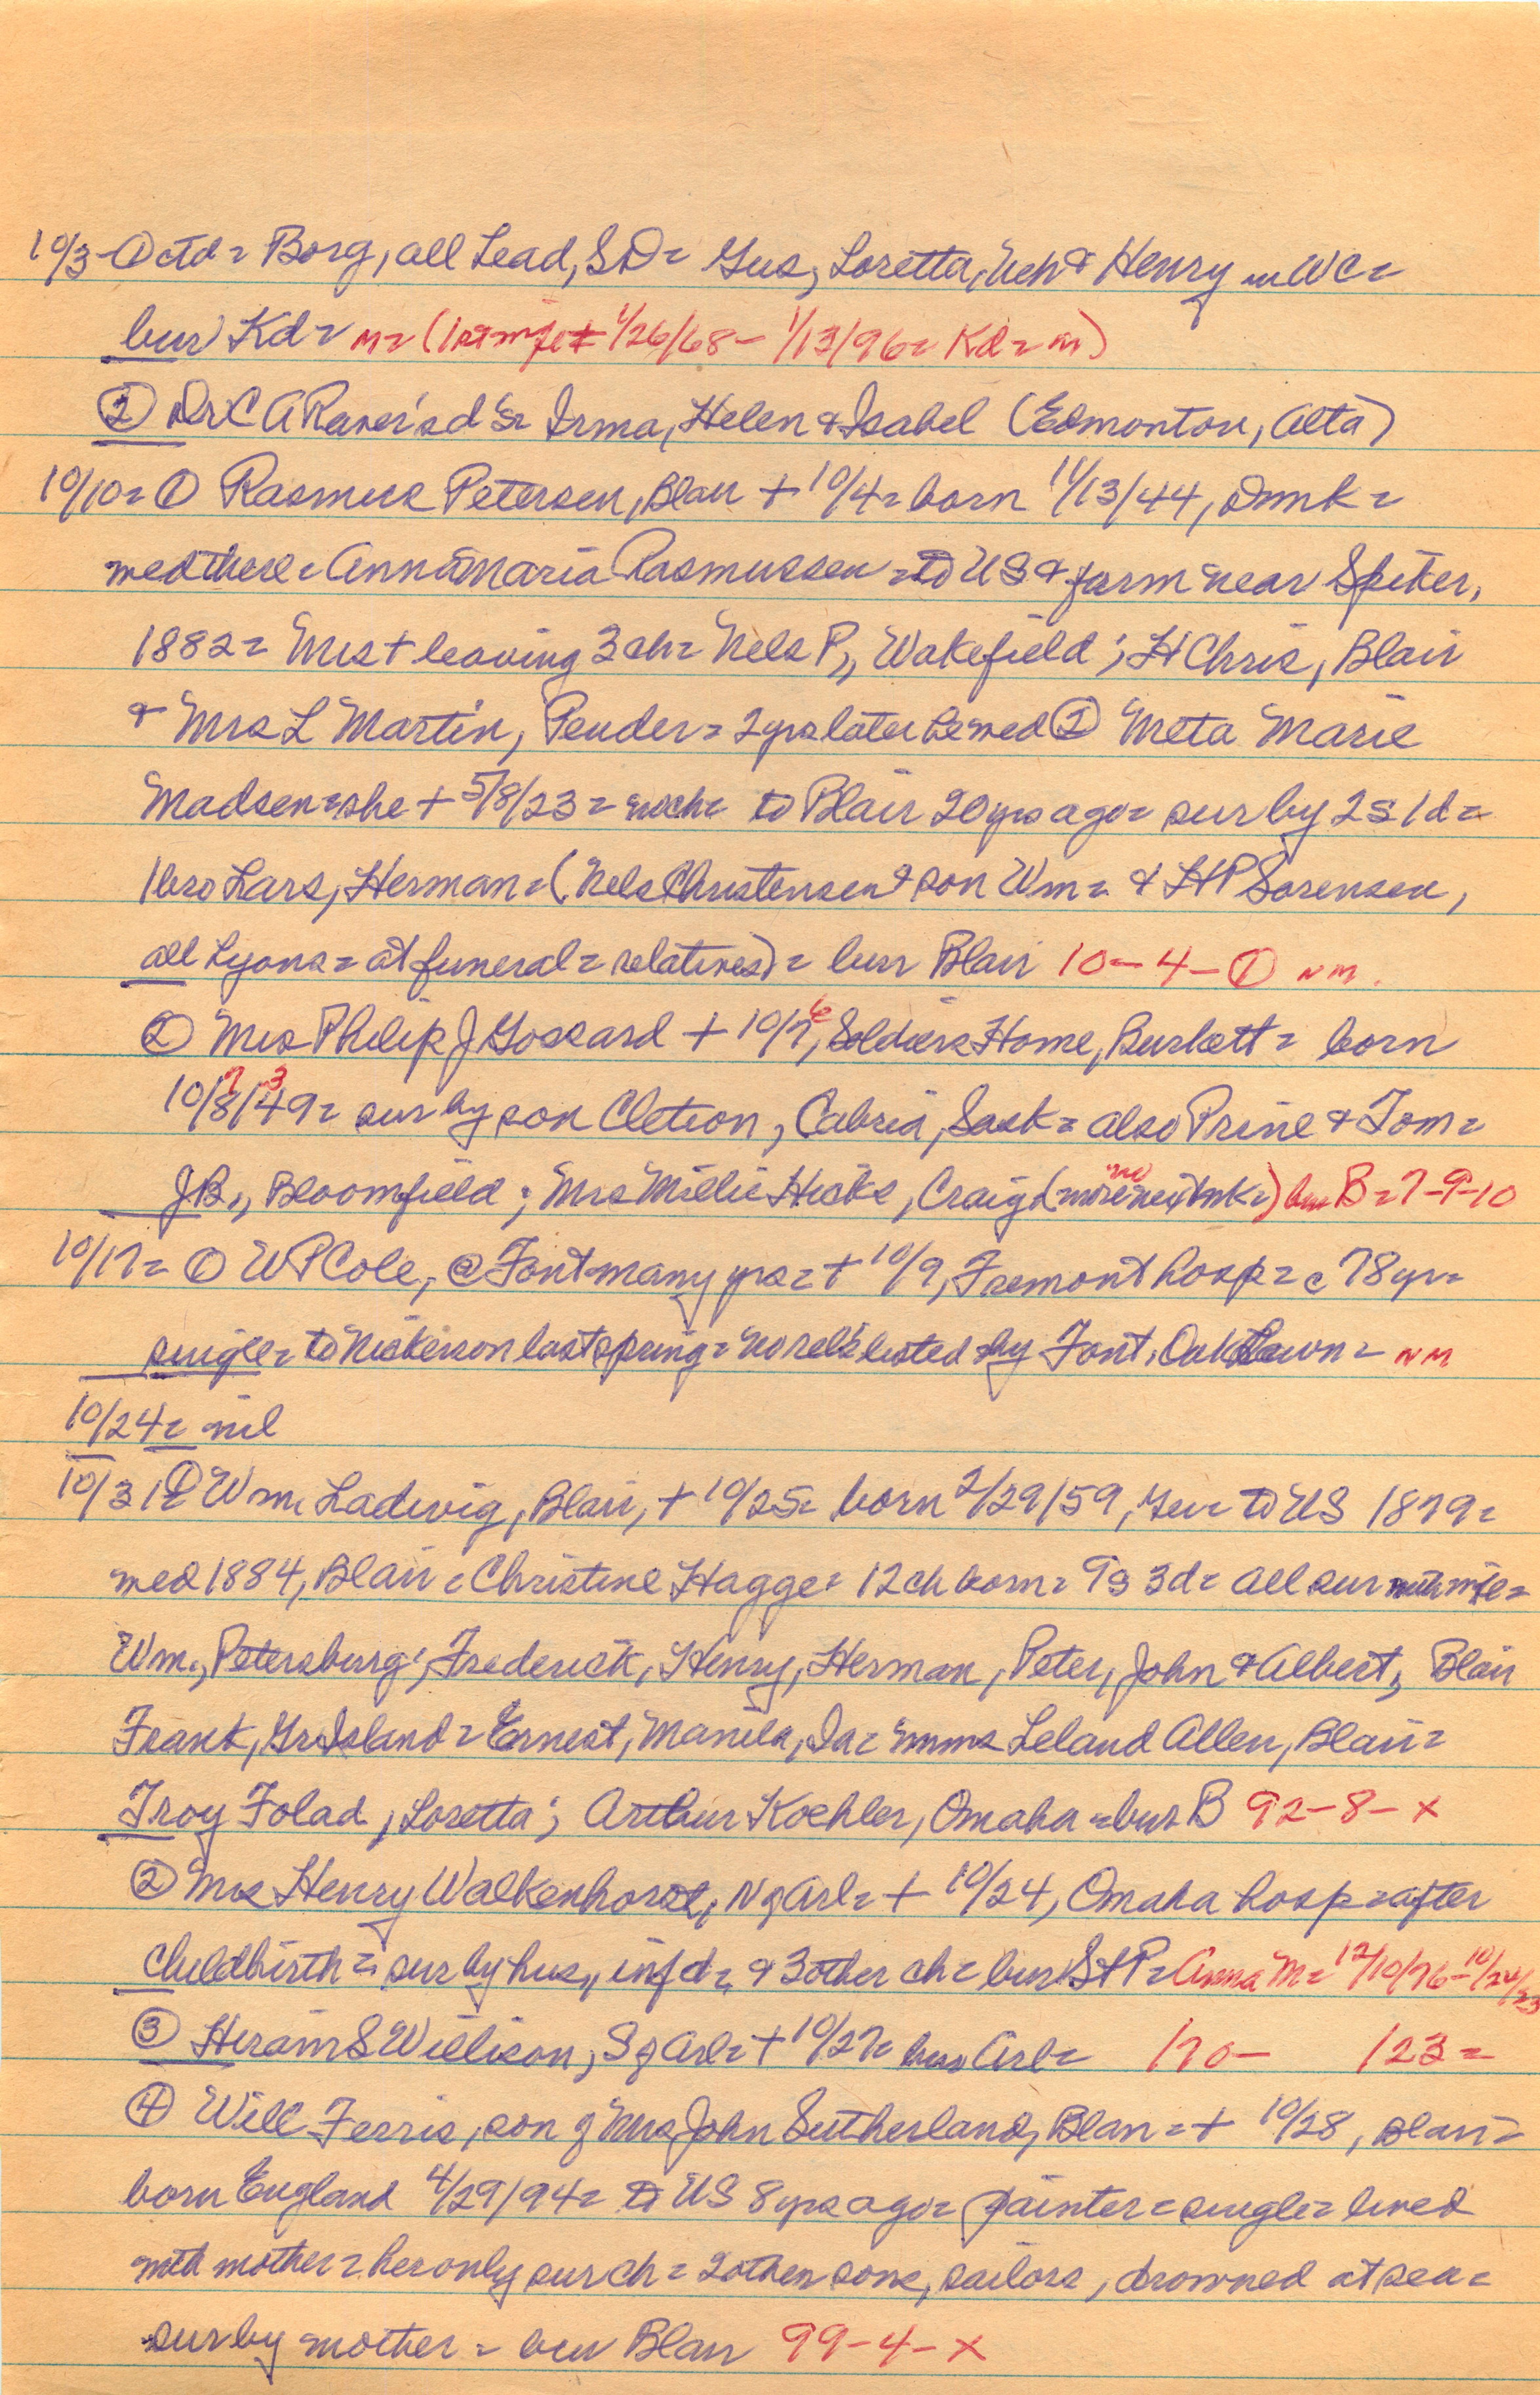 10/3-① ctd = Borg, all Lead, SD = Gus, Loretta, Neh & Henry in WC =
bur Kd = m = (1st wife 1/26/68 - 1/13/96 = Kd = m)
② Dr C A Raver's d's = Irma, Helen & Isabel (Edmonton, Alta)
10/10 = ① Rasmus Petersen, Blair + 10/4 = born 11/13/44, Dmk =
med there = Anna Maria Rasmussen = to US & farm near Spiker,
1882 = Mrs + leaving 3 ch = Nels P., Wakefield; H Chris, Blair
& Mrs L Martin, Pender = 2 yrs later he med ② Meta Marie
Madsen = she + 5/8/23 = no ch = to Blair 20 yrs ago = sur by 2 s 1 d =
1 bro Lars, Herman = (Nels Christensen & son Wm = & HP Sorensen,
all Lyons = at funeral = relatives) = bur Blair 10-4-① NM.
② Mrs Philip J Gossard + 10/7 6, Soldiers Home, Burkett = born
10/8/49 7 3 = sur by son Cletion, Cabria, Sask = also Prine & Tom =
JB., Bloomfield; Mrs Millie Hicks, Craig (no =) bur B = 7-9-10
10/17 = ① WP Cole, @ Font many yrs = + 10/9, Fremont hosp = c 78 yr =
single = to Nickerson last spring = no rel's listed by Font, Oak Lawn = NM
10/24 = nil
10/31 = ① Wm Ladwig, Blair, + 10/25 = born 2/29/59, Ger = to US 1879 =
med 1884, Blair = Christine Hagge = 12 ch born = 9 s 3 d = all sur with wife =
Wm., Petersburg; Frederick, Henry, Herman, Peter, John & Albert, Blair
Frank, Gr Island = Ernest, Manila, Ia = mmes Leland Allen, Blair =
Troy Folad, Loretta; Arthur Koehler, Omaha = bur B 92-8-x
② Mrs Henry Walkenhorst, N of Arl = + 10/24, Omaha hosp = after
childbirth = sur by hus., inf d, & 3 other ch = bur St P = Anna M = 12/10/76 - 10/24/23
③ Hiram S Willison, S of Arl = + 10/27 = bur Arl = 170- 123 =
④ Will Ferris, son of Mrs John Sutherland, Blair = + 10/28, Blair =
born England 4/29/94 = to US 8 yrs ago = painter = single = lived
with mother = her only sur ch = 2 other sons, sailors, drowned at sea =
sur by mother = bur Blair 99-4-x